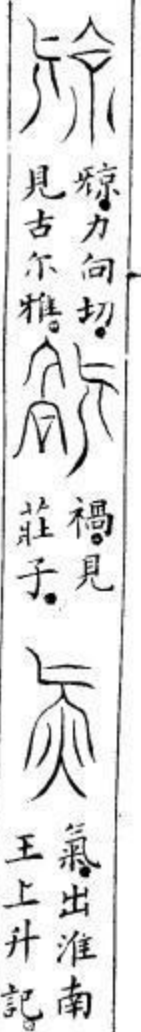 𣄴力向切
見古尔雅
禍見
莊子
氣出淮南
王上升記